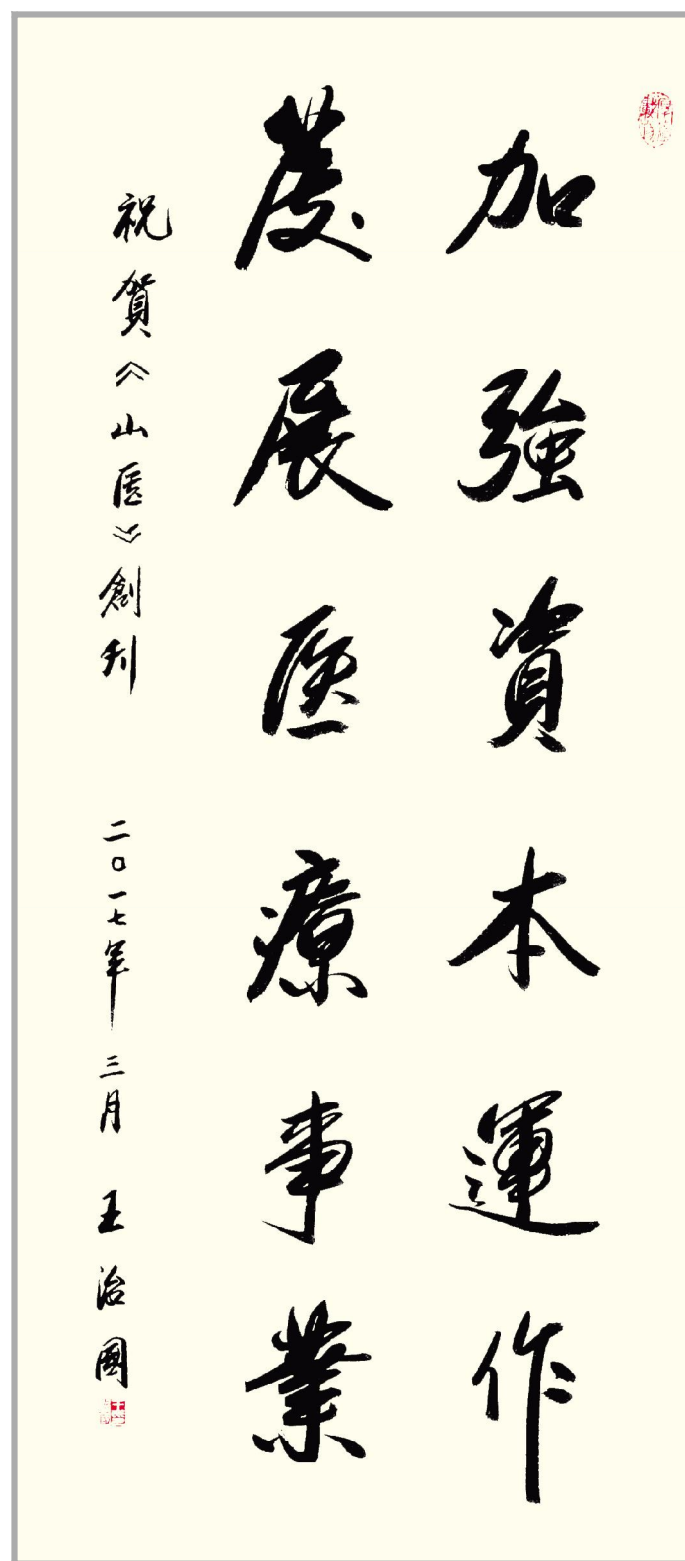 加強資本運作
發展医療事業
祝賀《山医》創刊
二〇一七年三月 王治國